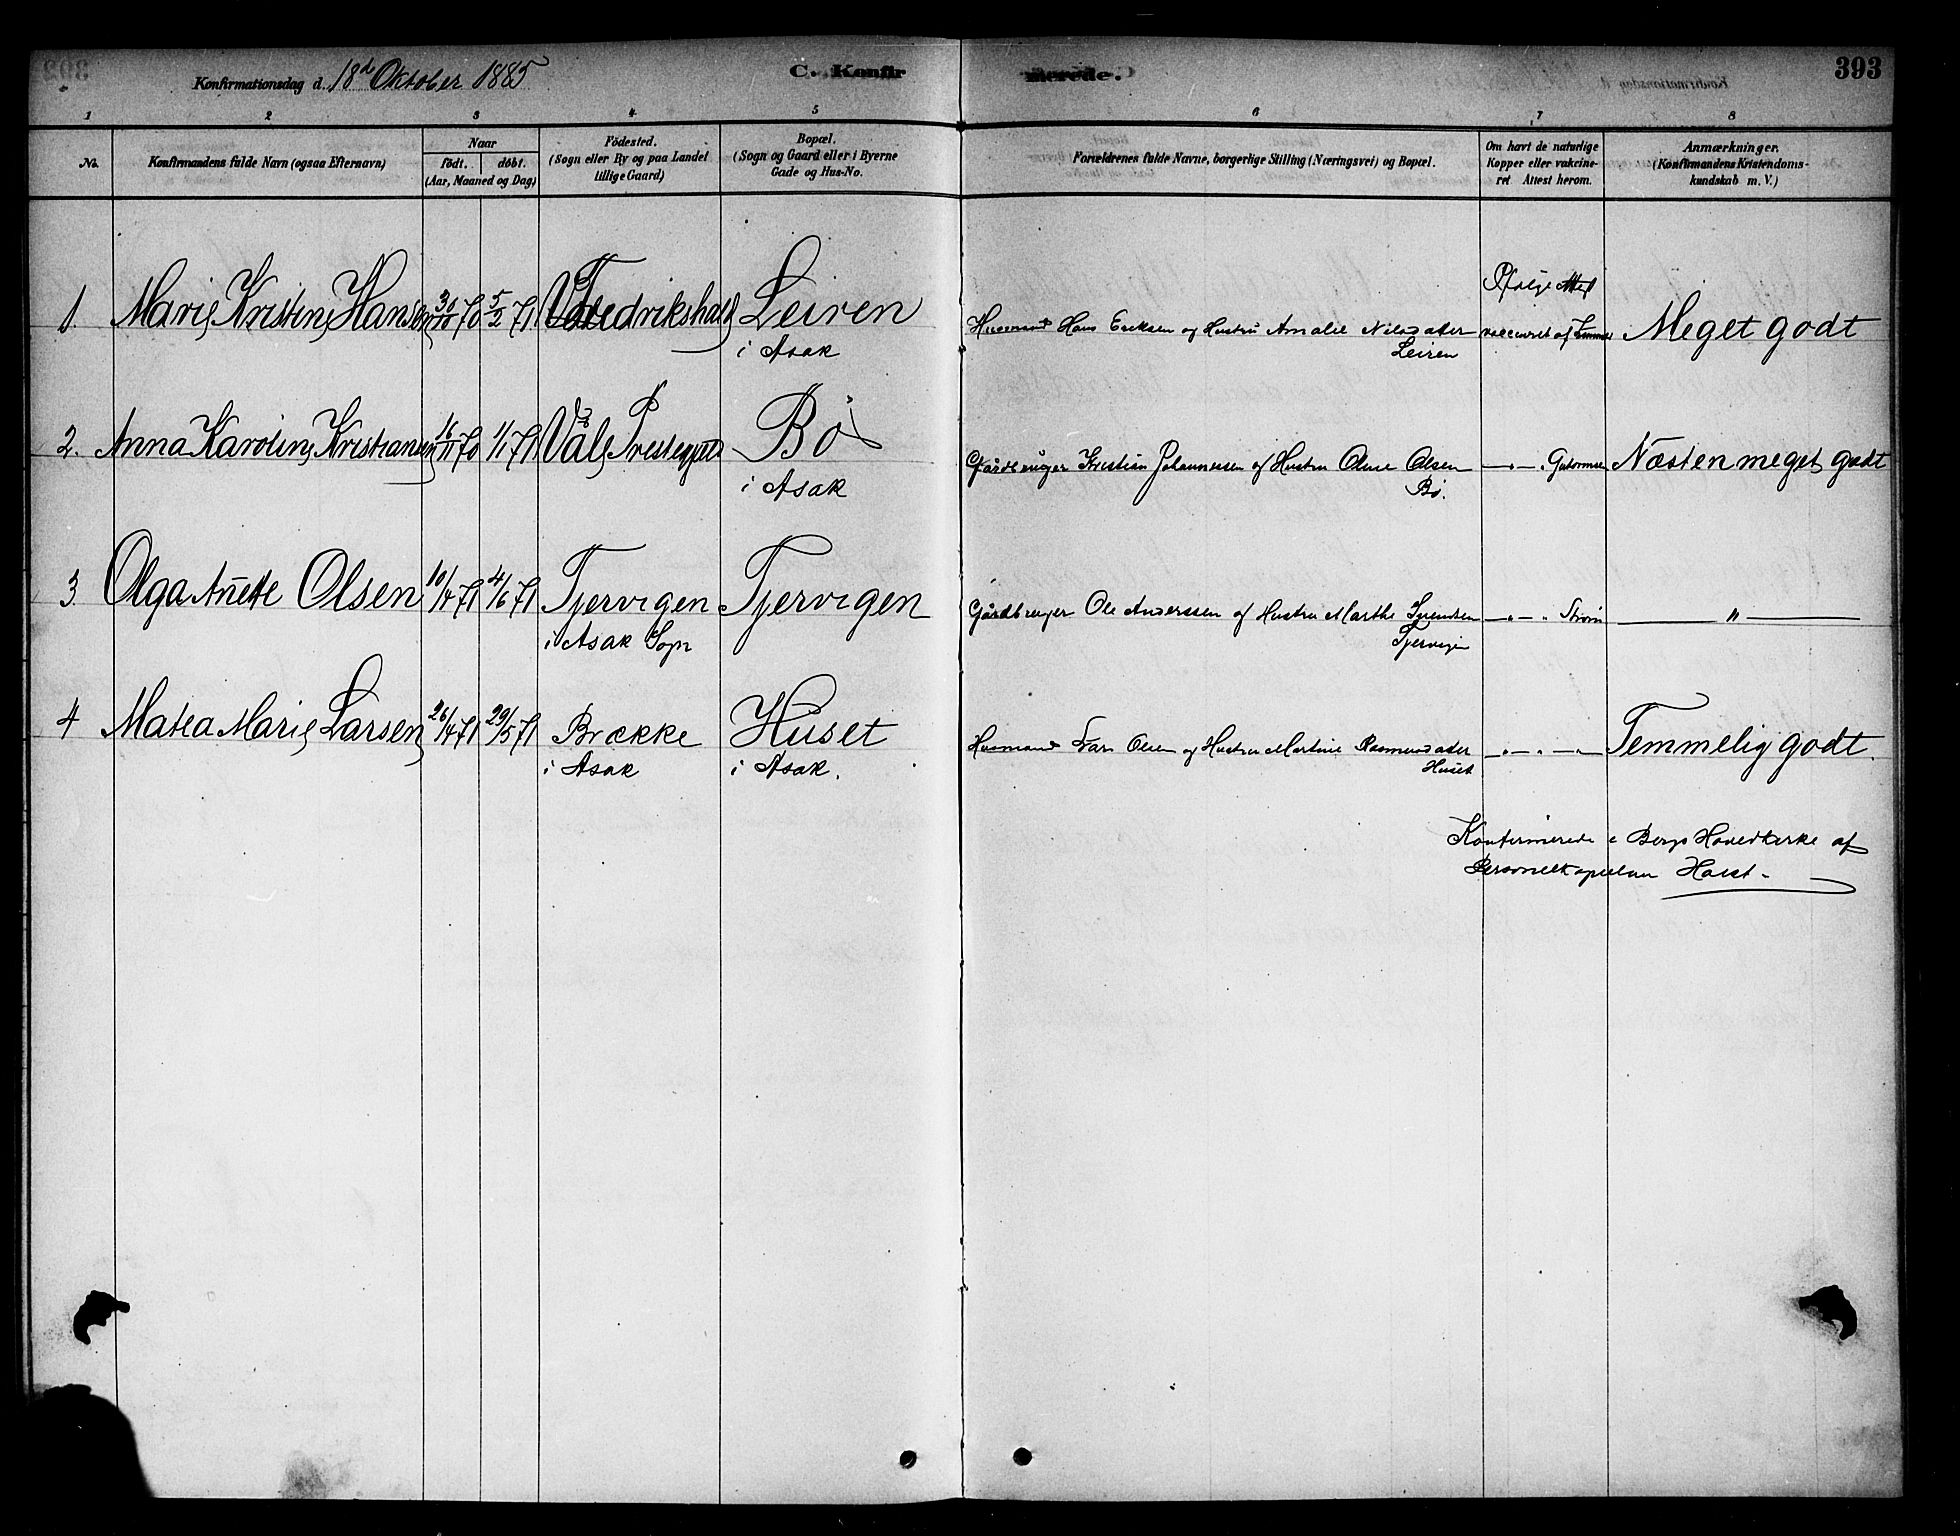 Konfirmationsdag d. 18d Oktober 1885
C. Konfirmerede.
393
1 2 3 4 5 6 7 8
No.
Konfirmandens fulde Navn (ogsaa Efternavn)
Naar
födt. döbt.
(Aar, Maaned og Dag)
Födested.
(Sogn eller By og paa Landet
tillige Gaard)
Bopæl.
(Sogn og Gaard eller i Byerne
Gade og Hus-No.
Forældrenes fulde Navne, borgerlige Stilling (Næringsvei) og Bopæl.
Om havt de naturlige
Kopper eller vakcine-
ret. Attest herom.
Anmærkninger.
(Konfirmandens Kristendoms-
kundskab m. V.)
1. Marie Kristine Hansen 30/10 70 5/2 71 Fredrikshald Leiren
i Asak
Husmand Hans Eriksen og Hustru Amalie Nilsdatter
Leiren
Ifølge Attest
vaccineret af
Meget godt
2. Anna Karoline Kristiansen 16/11 70 1/1 71 Våle Prestegjeld Bø
i Asak
Gårdbruger Kristian Johannessen og Hustru Oline Olsen
Bø.
—"— " Gutormsen
Næsten meget godt
3. Olga Anette Olsen 10/4 71 4/6 71 Tjervigen Tjervigen
i Asak Sogn
Gårdbruger Ole Anderssen og Hustru Marthe
Tjervigen
—"— " Strøm
— " —
4 Matea Marie Larsen 26/4 71 29/5 71 Brække Huset
i Asak i Asak.
Husmand Lars Olsen og Hustru Martine Rasmusdatter
Huset
"—"—"
Temmelig godt.
Konfirmerede i Bergs Hovedkirke af
Personelkapellan Holst.